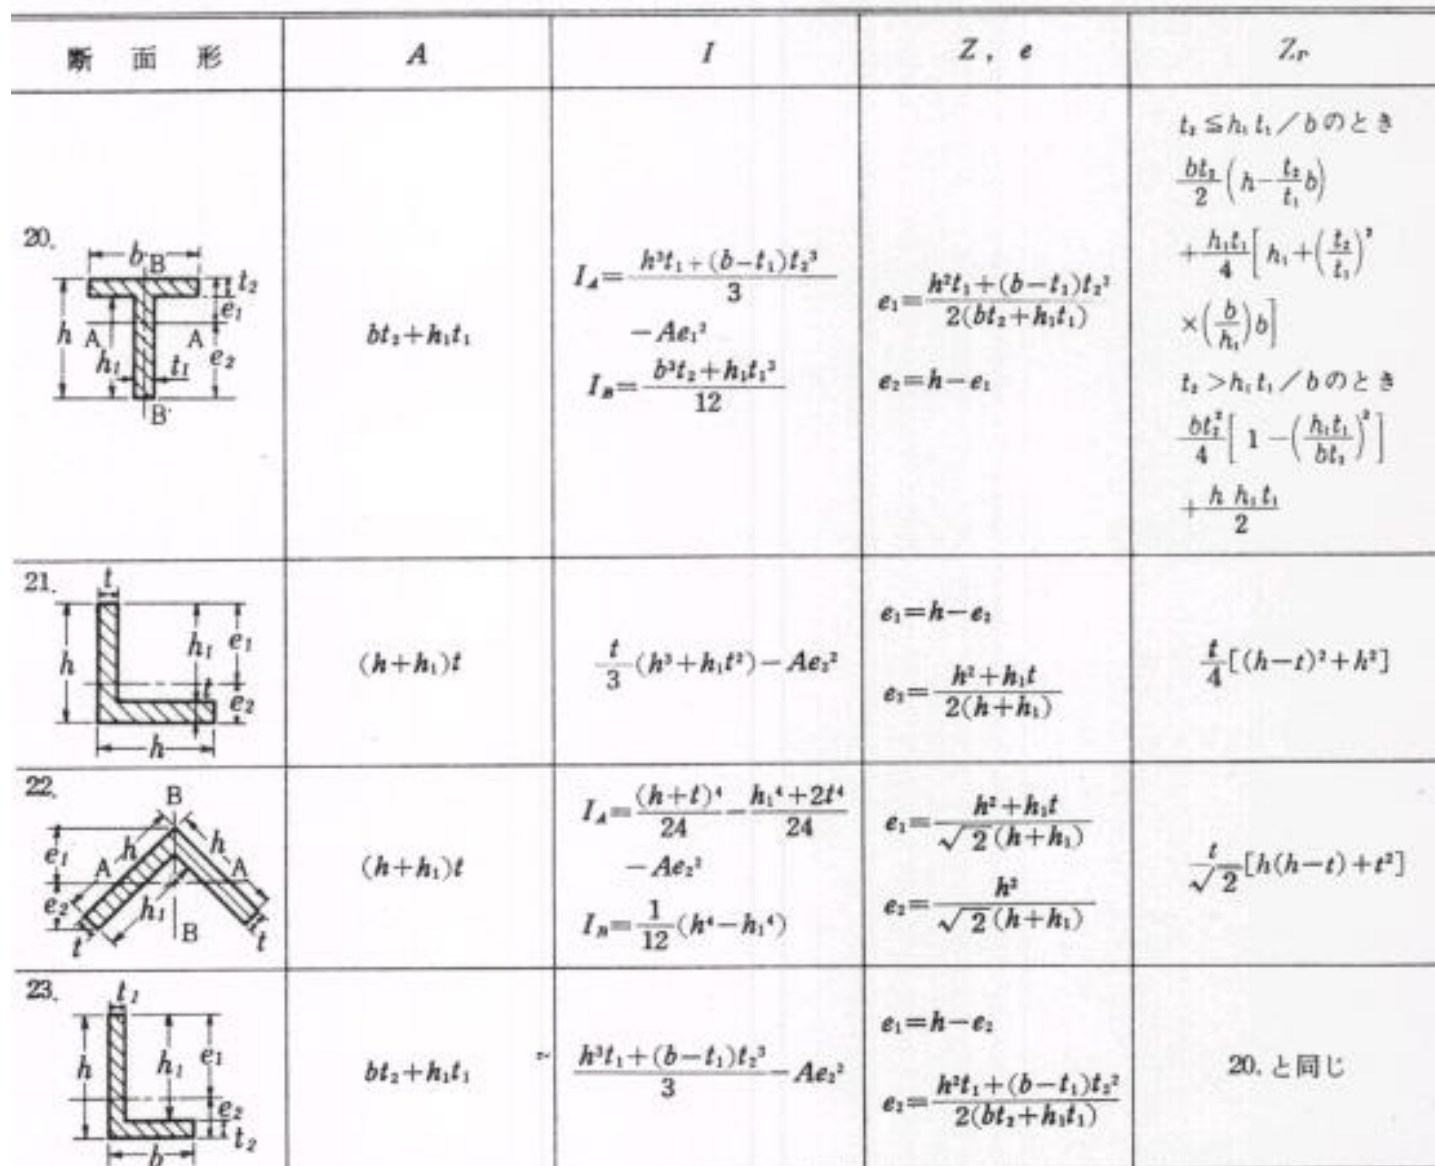 断 面 形 A I Z, e Z_P
20.
b B
t₂
e₁
h A A e₂
h₁ t₁
B
bt₂+h₁t₁
I_A=\frac{h³t₁+(b−t₁)t₂³}{3}
−Ae₁²
I_B=\frac{b³t₂+h₁t₁³}{12}
e₁=\frac{h²t₁+(b−t₁)t₂²}{2(bt₂+h₁t₁)}
e₂=h−e₁
t₂≦h₁t₁/bのとき
\frac{bt₂}{2}(h−\frac{t₂}{t₁}b)
+\frac{h₁t₁}{4}[h₁+(\frac{t₂}{t₁})²
×(\frac{b}{h₁})b]
t₂>h₁t₁/bのとき
\frac{bt₂²}{4}[1−(\frac{h₁t₁}{bt₂})²]
+\frac{h h₁t₁}{2}
21.
t
h h₁ e₁
t e₂
h
(h+h₁)t
\frac{t}{3}(h³+h₁t²)−Ae₂²
e₁=h−e₂
e₂=\frac{h²+h₁t}{2(h+h₁)}
\frac{t}{4}[(h−t)²+h²]
22.
B
e₁ A h h A
e₂ h₁
t B t
(h+h₁)t
I_A=\frac{(h+t)⁴}{24}−\frac{h₁⁴+2t⁴}{24}
−Ae₂²
I_B=\frac{1}{12}(h⁴−h₁⁴)
e₁=\frac{h²+h₁t}{√2(h+h₁)}
e₂=\frac{h²}{√2(h+h₁)}
\frac{t}{√2}[h(h−t)+t²]
23.
t₁
h h₁ e₁
e₂
t₂
b
bt₂+h₁t₁
\frac{h³t₁+(b−t₁)t₂³}{3}−Ae₂²
e₁=h−e₂
e₂=\frac{h²t₁+(b−t₁)t₂²}{2(bt₂+h₁t₁)}
20.と同じ